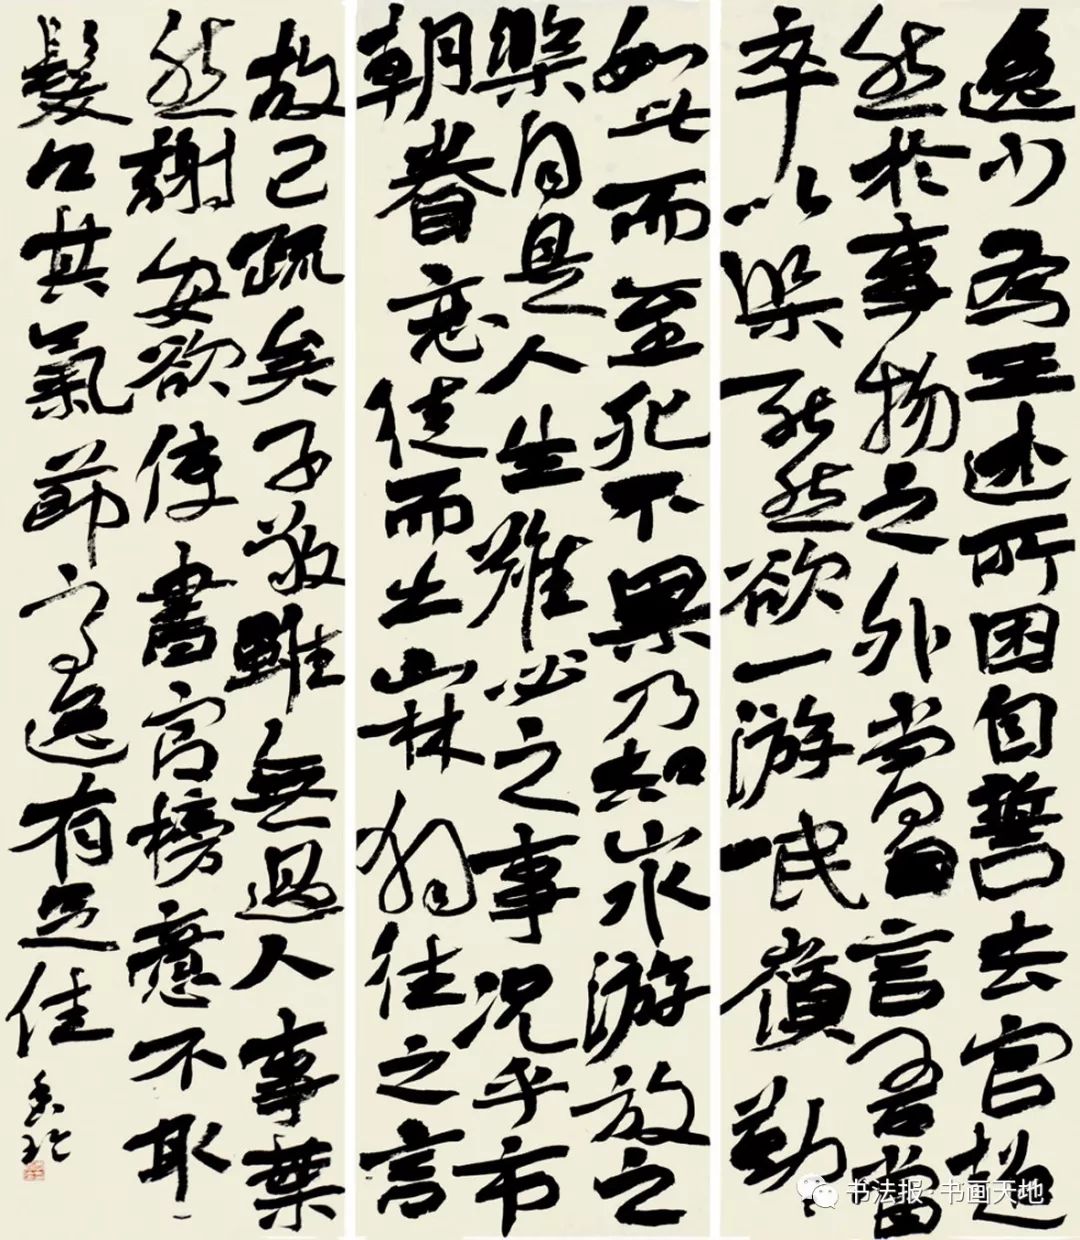 逸少為王述所困自誓去官超
然於事物之外嘗自言吾當
卒以樂死然欲一游岷嶺勤〻
如此而至死不果乃知山水游放之
樂自是人生難必之事況乎市
朝眷戀徒而出山林獨往之言
故已疏矣子敬雖無過人事業
然謝安欲使書宮榜不敢
髮口其氣節高逸有足佳
书法报·书画天地